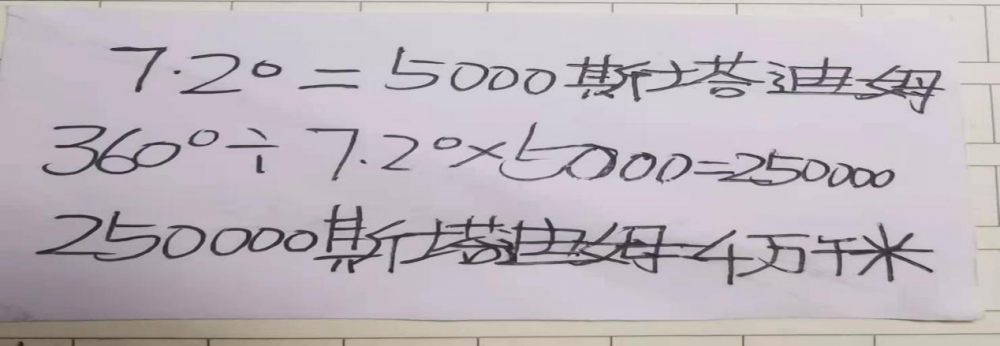 7.2°=5000斯塔迪姆
360°÷7.2°×5000=250000
250000斯塔迪姆=4万千米